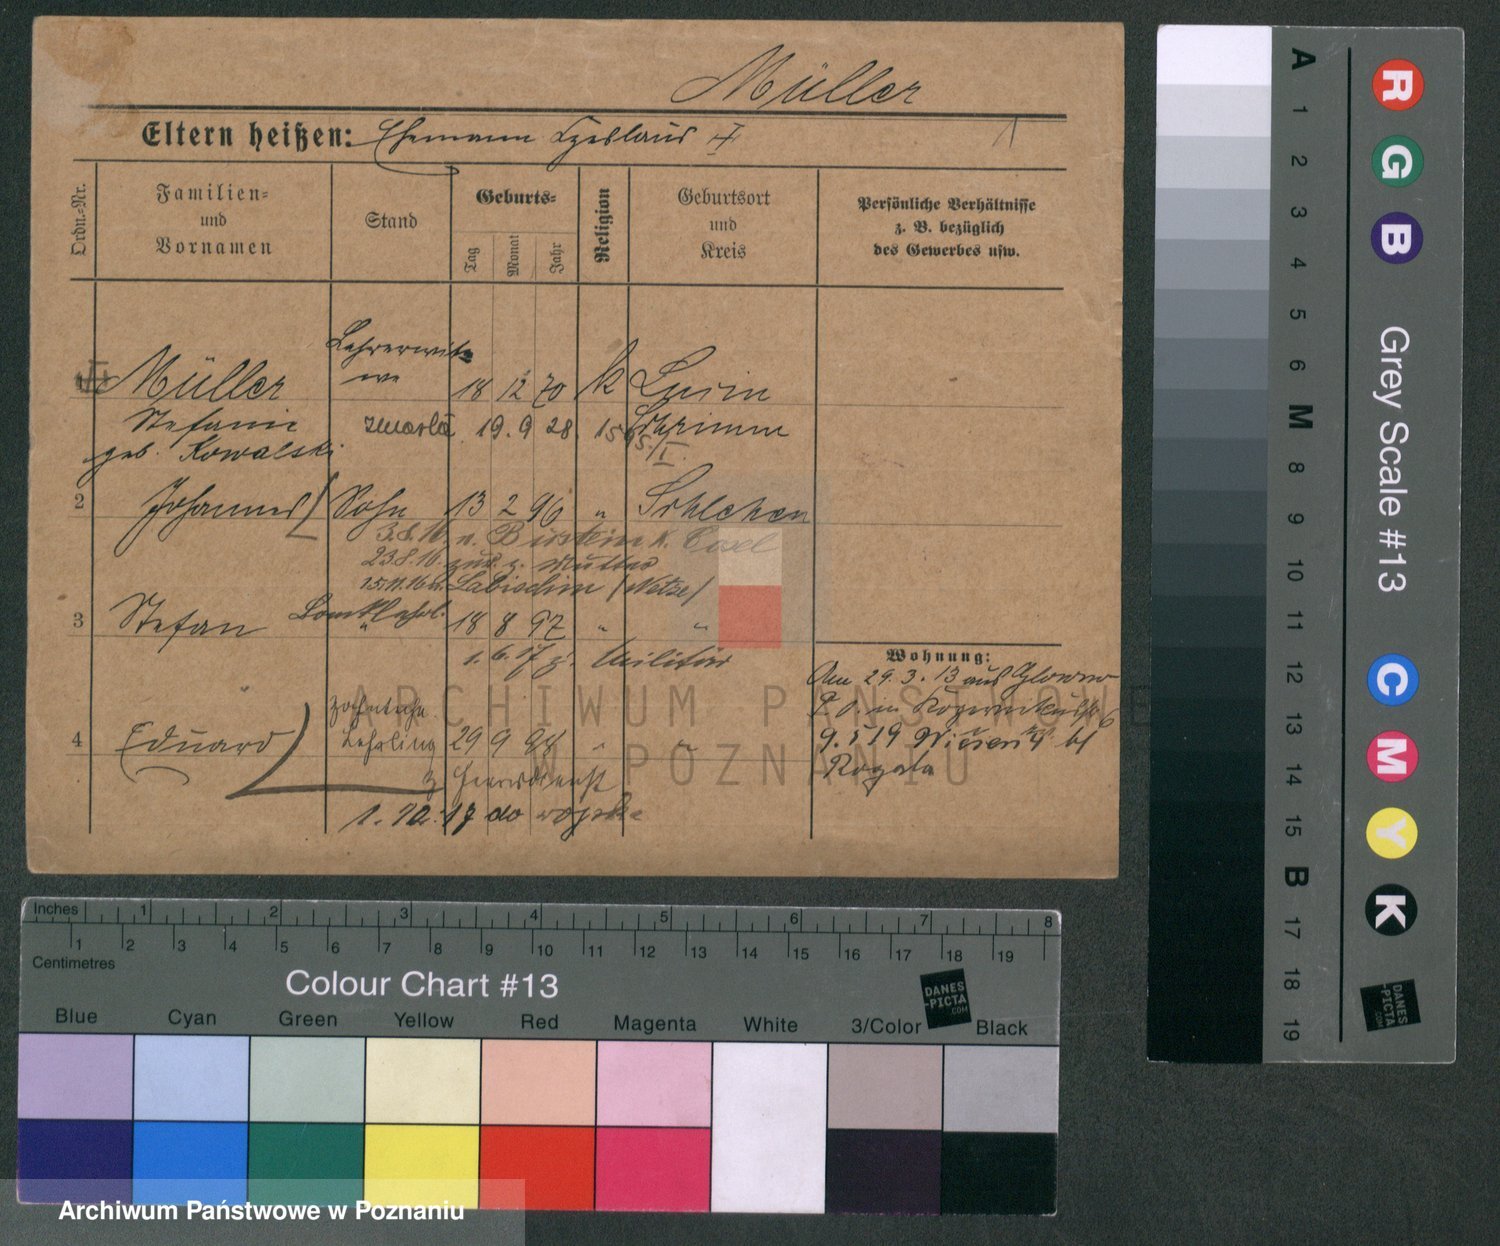 Müller
Eltern heißen: Ehemann Czeslaus
Ordn.-Nr.
Familien- und Vornamen
Stand
Geburts-
Tag
Monat
Jahr
Religion
Geburtsort und Kreis
Persönliche Verhältnisse z. B. bezüglich des Gewerbes usw.
Müller Lehrerwitwe 18 12 70 k
Stefanie zmarła 19. 9 28. Schrimm
geb. Kowalski
2 Johannes Sohn 13 2 96 "
3.8.16. n. Birstein k. Casel
23.8.16. zur. z. Mutter
15.11.16 n. Labischin (Netze)
3 Stefan 18 8 97 " "
1. 6. 17 z. Militär
Wohnung:
Am 29. 3. 13 aus Glowno
4 Eduard Lehrling 29 9 98 " "
z Heeresdienst
Rogala
1. 10. 17 do wojska
ARCHIWUM PAŃSTWOWE
W POZNANIU
Inches 1 2 3 4 5 6 7 8
1 2 3 4 5 6 7 8 9 10 11 12 13 14 15 16 17 18 19
Centimetres
Colour Chart #13
DANES-PICTA.COM
Blue Cyan Green Yellow Red Magenta White 3/Color Black
Archiwum Państwowe w Poznaniu
R G B Grey Scale #13 C M Y K
A 1 2 3 4 5 6 M 8 9 10 11 12 13 14 15 B 17 18 19
DANES-PICTA.COM